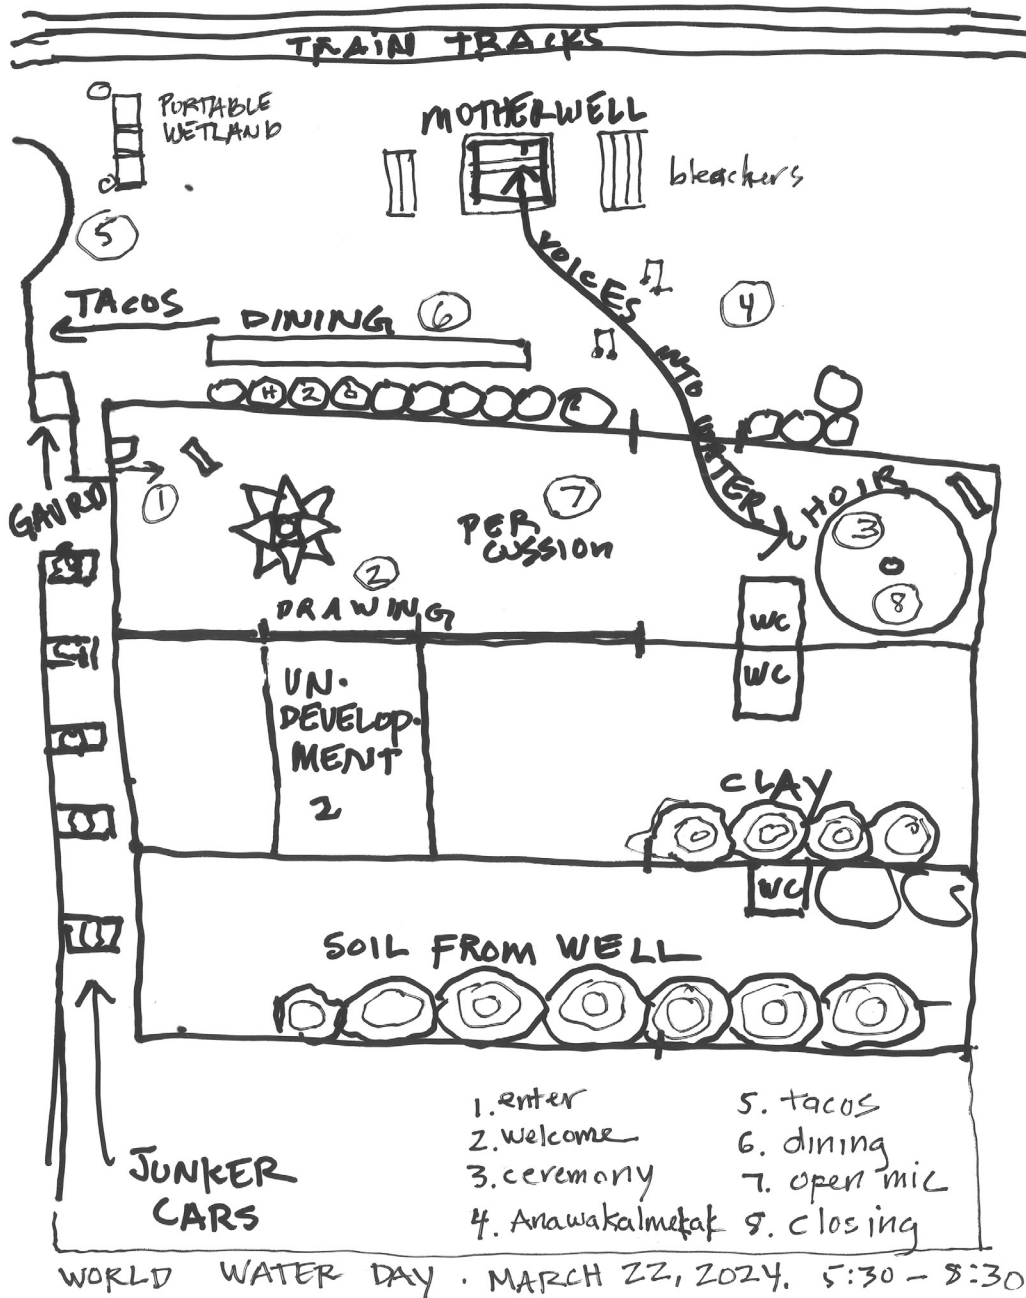 TRAIN TRACKS
PORTABLE
WETLAND
MOTHERWELL
bleachers
5
VOICES INTO WATER
4
TACOS
DINING
6
H 2 O
GAURD
1
7
PER
CUSSION
CHOIR
3
8
2
DRAWING
WC
WC
UN-
DEVELOP-
MENT
2
CLAY
WC
SOIL FROM WELL
JUNKER
CARS
1. enter
2. welcome
3. ceremony
4. Anawakalmekak
5. tacos
6. dining
7. open mic
8. closing
WORLD WATER DAY . MARCH 22, 2024. 5:30 - 8:30